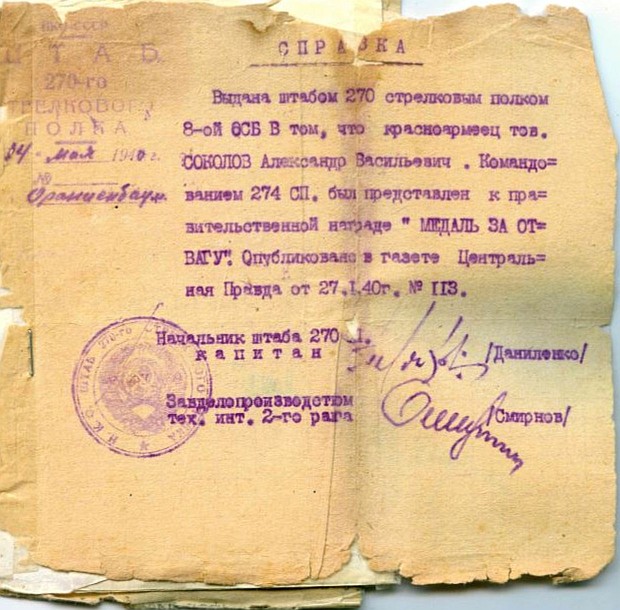 НКО-СССР
ШТАБ
270-го
СТРЕЛКОВОГО
ПОЛКА
мая 1940 г.
№
Ораниенбаум.
СПРАВКА
Выдана штабом 270 стрелковым полком
8-ой ОСБ В том, что красноармеец тов.
СОКОЛОВ Александр Васильевич . Командо=
ванием 274 СП. был представлен к пра=
вительственной награде " МЕДАЛЬ ЗА ОТ=
ВАГУ". Опубликовано в газете Централь=
ная Правда от 27.I.40г. № II3.
Начальник штаба 270
капитан
/Даниленко/
Завделопроизводстюм
тех. инт. 2-го рага
/Смирнов/
Н.К.О. ШТАБ 270-го